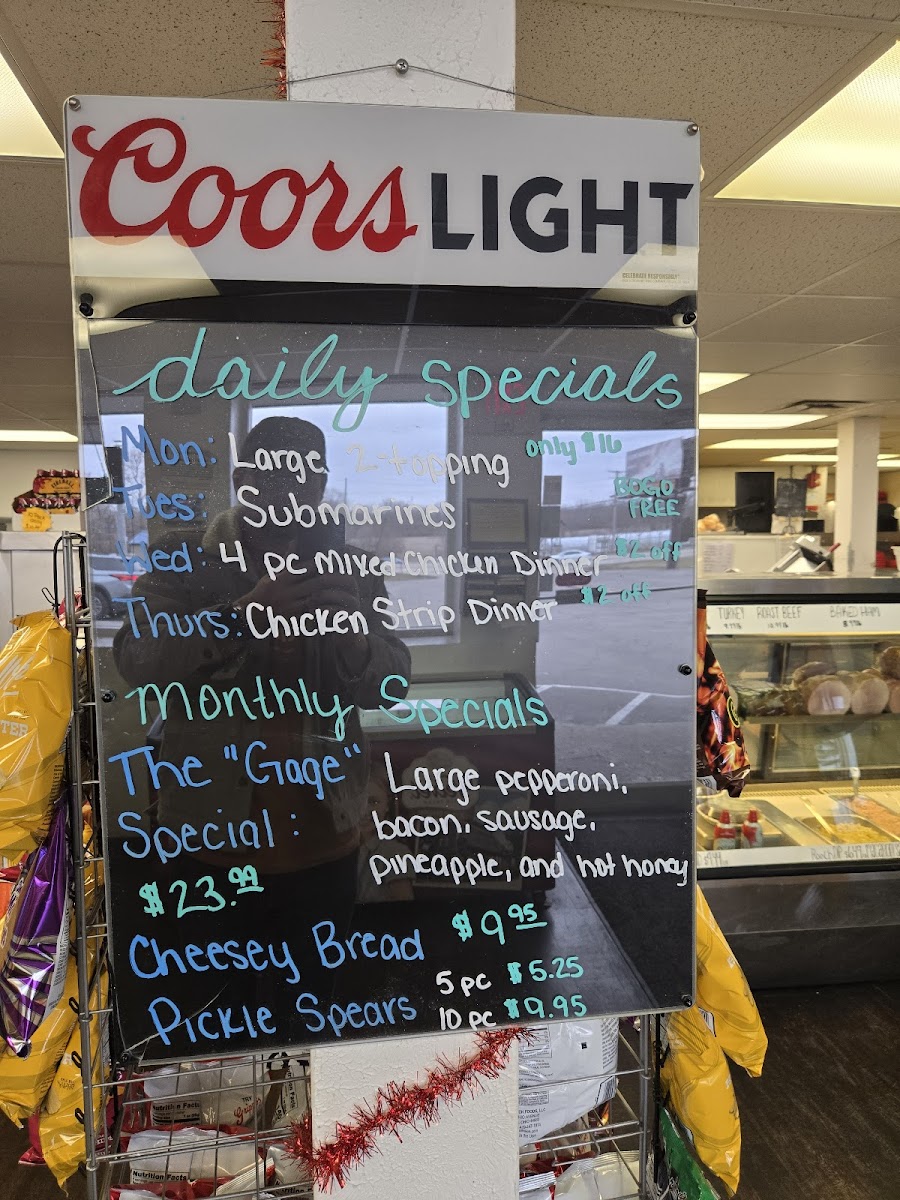 Coors LIGHT
CELEBRATE RESPONSIBLY
daily specials
Mon: Large 2-topping only $16
Tues: Submarines BOGO FREE
Wed: 4 pc Mixed Chicken Dinner $2 off
Thurs: Chicken Strip Dinner $2 off
Monthly Specials
The "Gage" Large pepperoni,
Special: bacon, sausage,
$23.99 pineapple, and hot honey
Cheesey Bread $9.95
Pickle Spears 5 pc $5.25
10 pc $9.95
TURKEY ROAST BEEF BAKED HAM
Nutrition Facts
Nutrition Facts